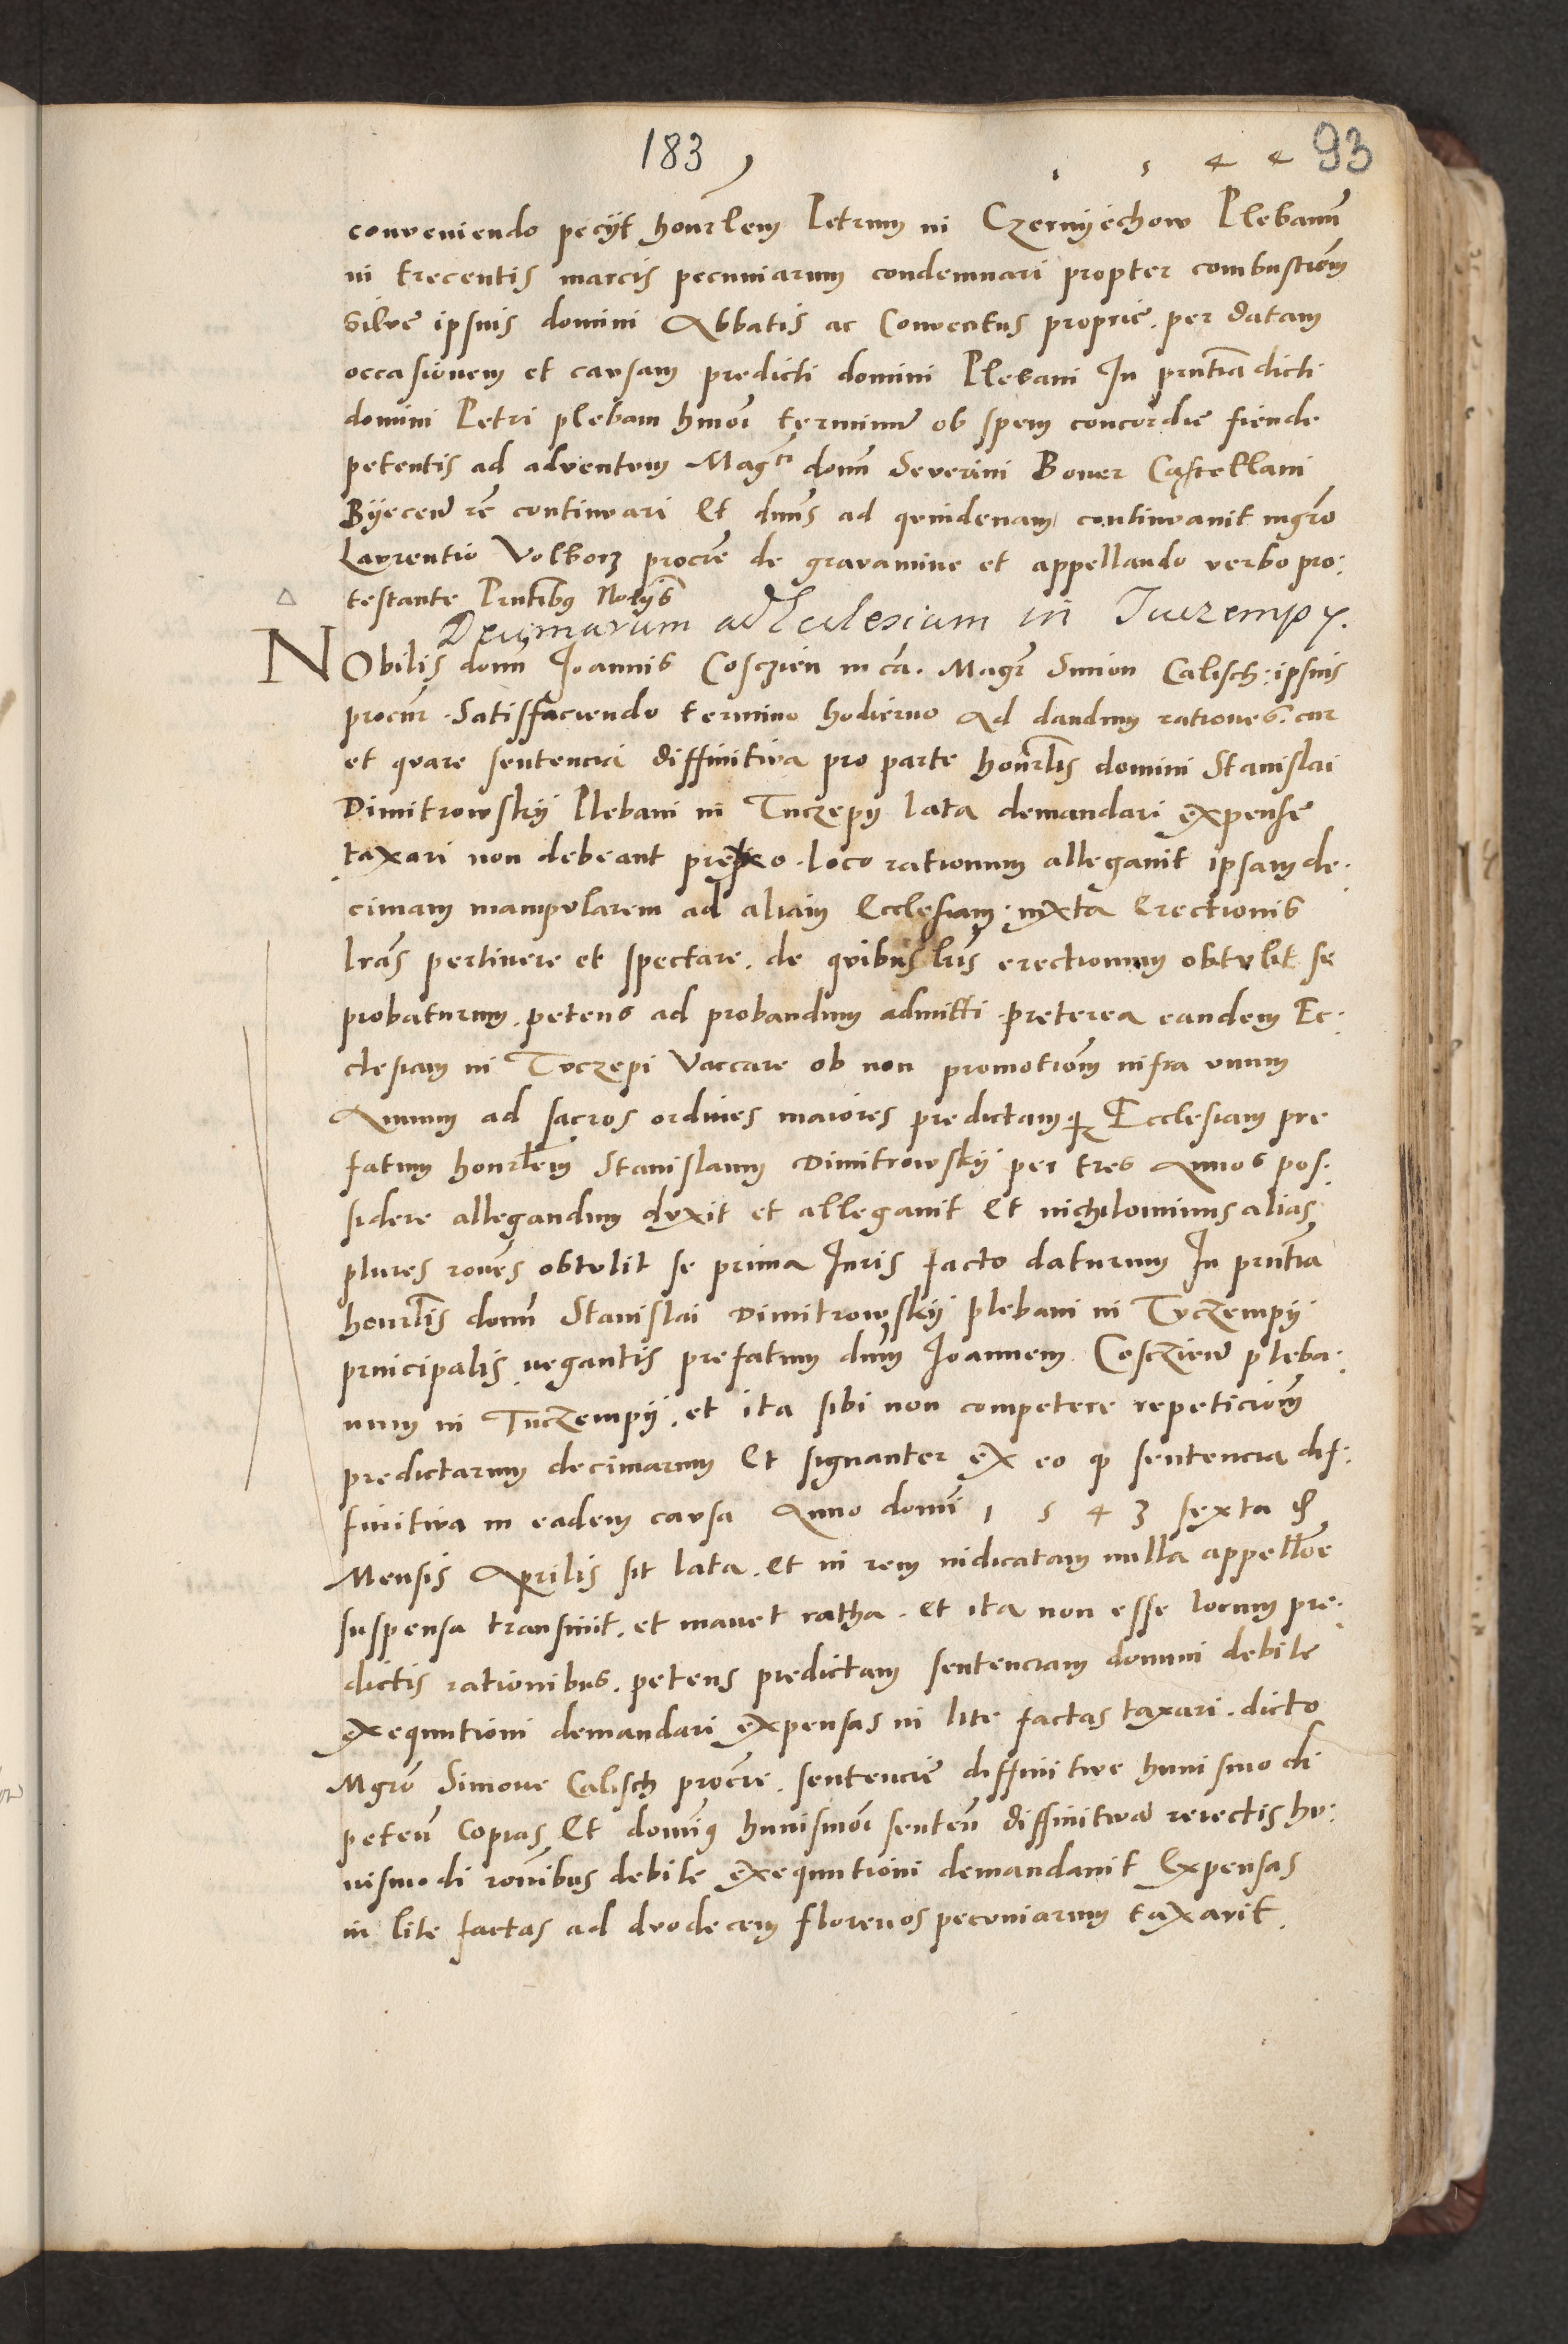 183 1 5 4 4 93
conveniendo pecijt honrlem Petrum in Czernijechow Plebanu
in trecentis marcis pecuniarum condemnari propter combustiom
silve ipsius domini Abbatis ac Conventus proprie. per datam
occasionem et causam predicti domini Plebani In pntia dicti
domini Petri plebani hmoi terminu ob spem concordie fiende
petentis ad adventum Magci domi Severini Boner Castellani
Byecen re continuari Et dnus ad quindenam continuavit mgro
Laurentio Volborz procre de gravamine et appellando verbo pro:
testante Pntibus Notijs
Decimarum ad Ecclesiam in Tuczempy.
NObilis domi Joannis Cosczien in ca. Magr Simon Calisch: ipsius
procur. Satisffaciendo termino hodierno Ad dandum rationes. cur
et quare sentencia diffinitiva pro parte honrlis domini Stanislai
Dimitrowskij Plebani in Tuczepij lata demandari expense
taxari non debeant loco rationum allegavit ipsam de:
cimam manipularem ad aliam Ecclesiam: iuxta Erectionis
lras pertinere et spectare. de quibus lris erectionum obtulit se
probaturum. petens ad probandum admitti. preterea eandem Ec:
clesiam in Tuczepi Vaccare ob non promotiom infra unum
Annum ad sacros ordines maiores predictamq Ecclesiam pre
fatum honrlem Stanislaum Dimitrowskij per tres Annos pos:
sidere allegandum duxit et allegavit Et nichilominus alias
plures rones obtulit se prima Juris facto daturum In pntia
honrlis domi Stanislai Dimitrowskij plebani in Tuczempij
principalis negantis prefatum dnum Joannem Cosczien pleba:
num in Tuczempij. et ita sibi non competere repeticiom
predictarum decimarum Et signanter ex eo q sentencia dif:
finitiva in eadem causa Anno domi 1 5 4 3 sexta
Mensis Aprilis sit lata. Et in rem iudicatam nulla appelloe
suspensa transivit. et manet ratha. et ita non esse locum pre:
dictis rationibus. petens predictam sentenciam domini debite
exequutioni demandari expensas in lite factas taxari. dicto
Mgro Simone Calisch procre. sentencie diffinitive huiusmodi
peten Copias Et domius huiusmoi senten diffinitiva reiectis hu:
iusmodi ronibus debite exequutioni demandavit Expensas
in lite factas ad duodecem florenos pecuniarum taxavit.